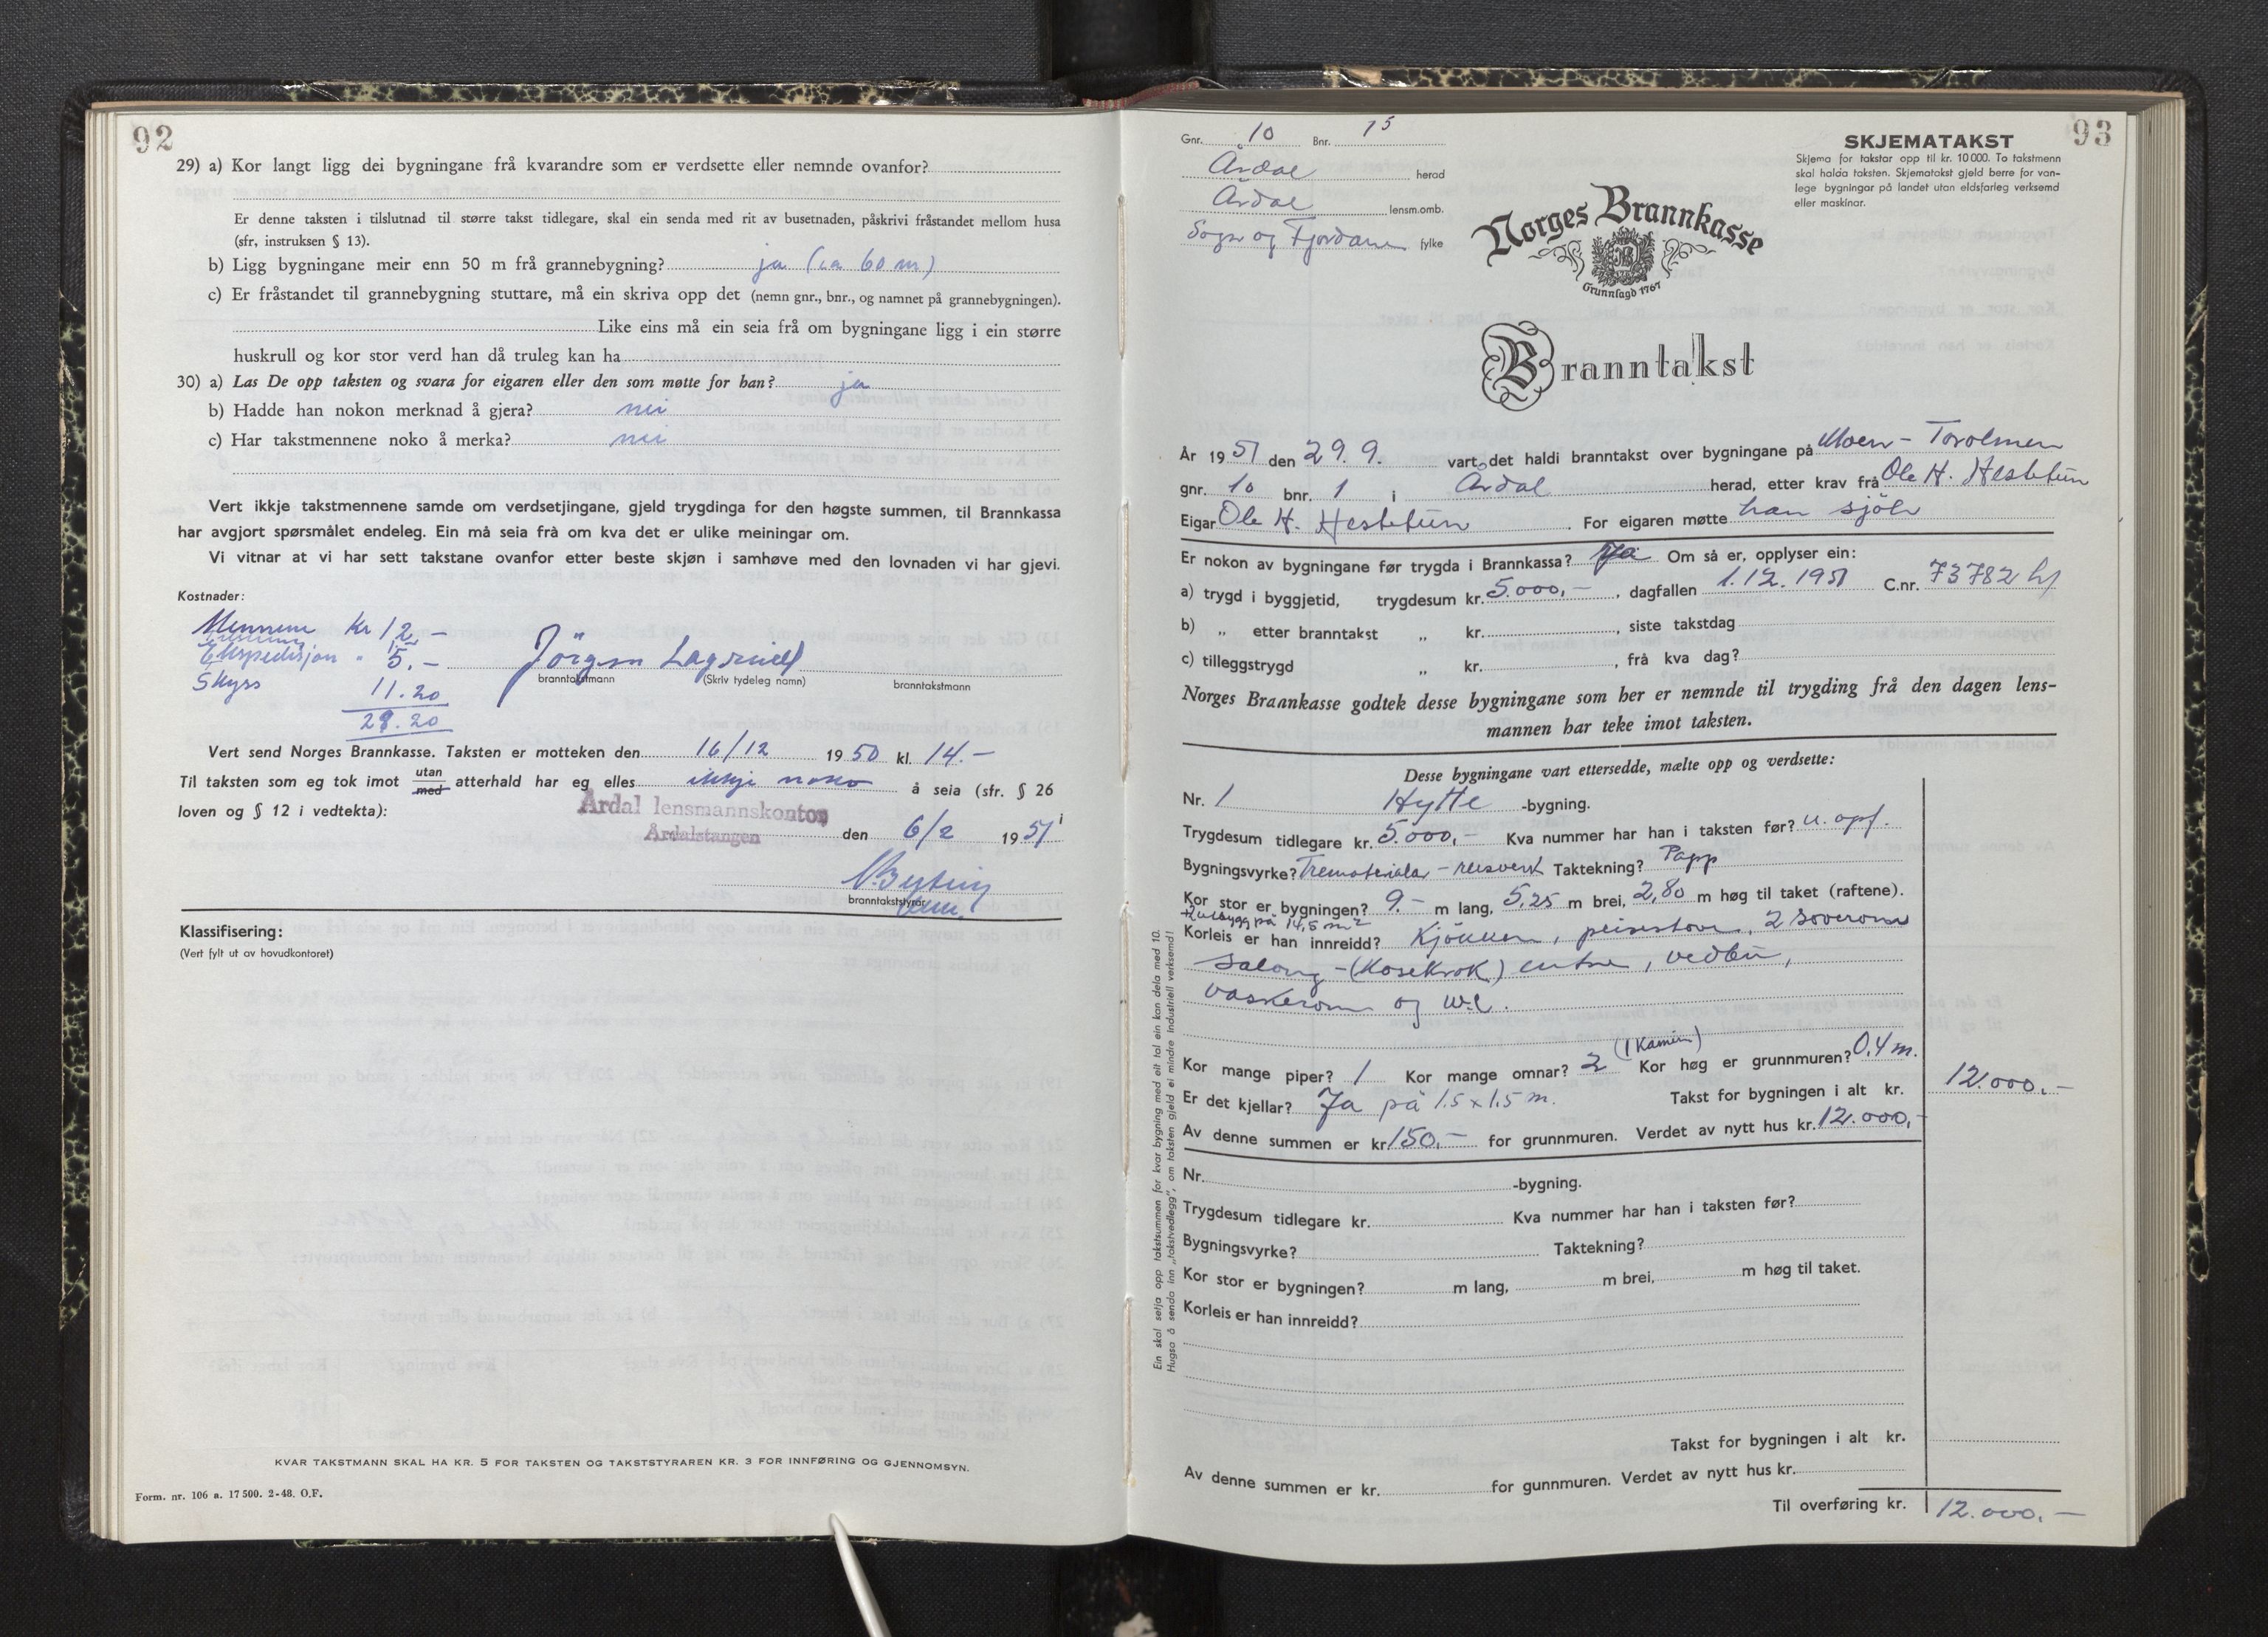 92
29) a) Kor langt ligg dei bygningane frå kvarandre som er verdsette eller nemnde ovanfor?
Er denne taksten i tilslutnad til større takst tidlegare, skal ein senda med rit av busetnaden, påskrivi fråstandet mellom husa
(sfr, instruksen § 13).
b) Ligg bygningane meir enn 50 m frå grannebygning? ja (ca 60 m)
c) Er fråstandet til grannebygning stuttare, må ein skriva opp det (nemn gnr., bnr., og namnet på grannebygningen).
Like eins må ein seia frå om bygningane ligg i ein større
huskrull og kor stor verd han då truleg kan ha
30) a) Las De opp taksten og svara for eigaren eller den som møtte for han? ja
b) Hadde han nokon merknad å gjera? nei
c) Har takstmennene noko å merka? nei
Vert ikkje takstmennene samde om verdsetjingane, gjeld trygdinga for den høgste summen, til Brannkassa
har avgjort spørsmålet endeleg. Ein må seia frå om kva det er ulike meiningar om.
Vi vitnar at vi har sett takstane ovanfor etter beste skjøn i samhøve med den lovnaden vi har gjevi.
Kostnader:
Mennene Kr 12.-
Ekspedisjon " 5.-
Skyss 11.20
28.20
Jörgen Lægreid
branntakstmann (Skriv tydeleg namn) branntakstmann
Vert send Norges Brannkasse. Taksten er motteken den 16/12 1950 kl. 14.-
Til taksten som eg tok imot utan med atterhald har eg elles ikkje noko å seia (sfr. § 26
loven og § 12 i vedtekta):
Årdal lensmannskontor
Årdalstangen den 6/2 1951
branntakststyrar
Klassifisering:
(Vert fylt ut av hovudkontoret)
KVAR TAKSTMANN SKAL HA KR. 5 FOR TAKSTEN OG TAKSTSTYRAREN KR. 3 FOR INNFØRING OG GJENNOMSYN.
Form. nr. 106 a. 17 500. 2-48. O.F.
93
Gnr. 10 Bnr. 15
Årdal herad
Årdal lensm.omb.
Sogn og Fjordane fylke
SKJEMATAKST
Skjema for takstar opp til kr. 10 000. To takstmenn
skal halda taksten. Skjematakst gjeld berre for van-
lege bygningar på landet utan eldsfarleg verksemd
eller maskinar.
Norges Brannkasse
Grunnlagd 1767
Branntakst
År 1951 den 29. 9. vart det haldi branntakst over bygningane på Moen - Torolmen
gnr. 10 bnr. 1 i Årdal herad, etter krav frå Ole H. Hestetun
Eigar Ole H. Hestetun For eigaren møtte han sjölv
Er nokon av bygningane før trygda i Brannkassa? Ja Om så er, opplyser ein:
a) trygd i byggjetid, trygdesum kr. 5.000,- , dagfallen 1.12.1951 C.nr. 73782 hf
b) „ etter branntakst „ kr. , siste takstdag
c) tilleggstrygd „ kr. , frå kva dag?
Norges Brannkasse godtek desse bygningane som her er nemnde til trygding frå den dagen lens-
mannen har teke imot taksten.
Desse bygningane vart ettersedde, mælte opp og verdsette:
Nr. 1 Hytte -bygning.
Trygdesum tidlegare kr. 5.000,- Kva nummer har han i taksten før? u. opf.
Bygningsvyrke? Trematerialar - reisverk Taktekning? Papp
Kor stor er bygningen? 9.- m lang, 5,25 m brei, 2,80 m høg til taket (raftene).
+ utbygg på 14,5 m²
Korleis er han innreidd? Kjökken, peisestove, 2 soverom
salong - (Kosekrok) entre, vedbu,
vaskerom og w.c.
Kor mange piper? 1 Kor mange omnar? 2 (1 Kamin) Kor høg er grunnmuren? 0,4 m.
Er det kjellar? Ja på 1.5 x 1.5 m. Takst for bygningen i alt kr. 12.000.-
Av denne summen er kr. 150,- for grunnmuren. Verdet av nytt hus kr. 12.000,-
Nr. -bygning.
Trygdesum tidlegare kr. Kva nummer har han i taksten før?
Bygningsvyrke? Taktekning?
Kor stor er bygningen? m lang, m brei, m høg til taket.
Korleis er han innreidd?
Takst for bygningen i alt kr.
Av denne summen er kr. for gunnmuren. Verdet av nytt hus kr.
Til overføring kr. 12.000.-
Ein skal setja opp takstsummen for kvar bygning med eit tal ein kan dela med 10.
Hugsa å senda inn „takstvedlegg", om taksten gjeld ei mindre industriell verksemd!